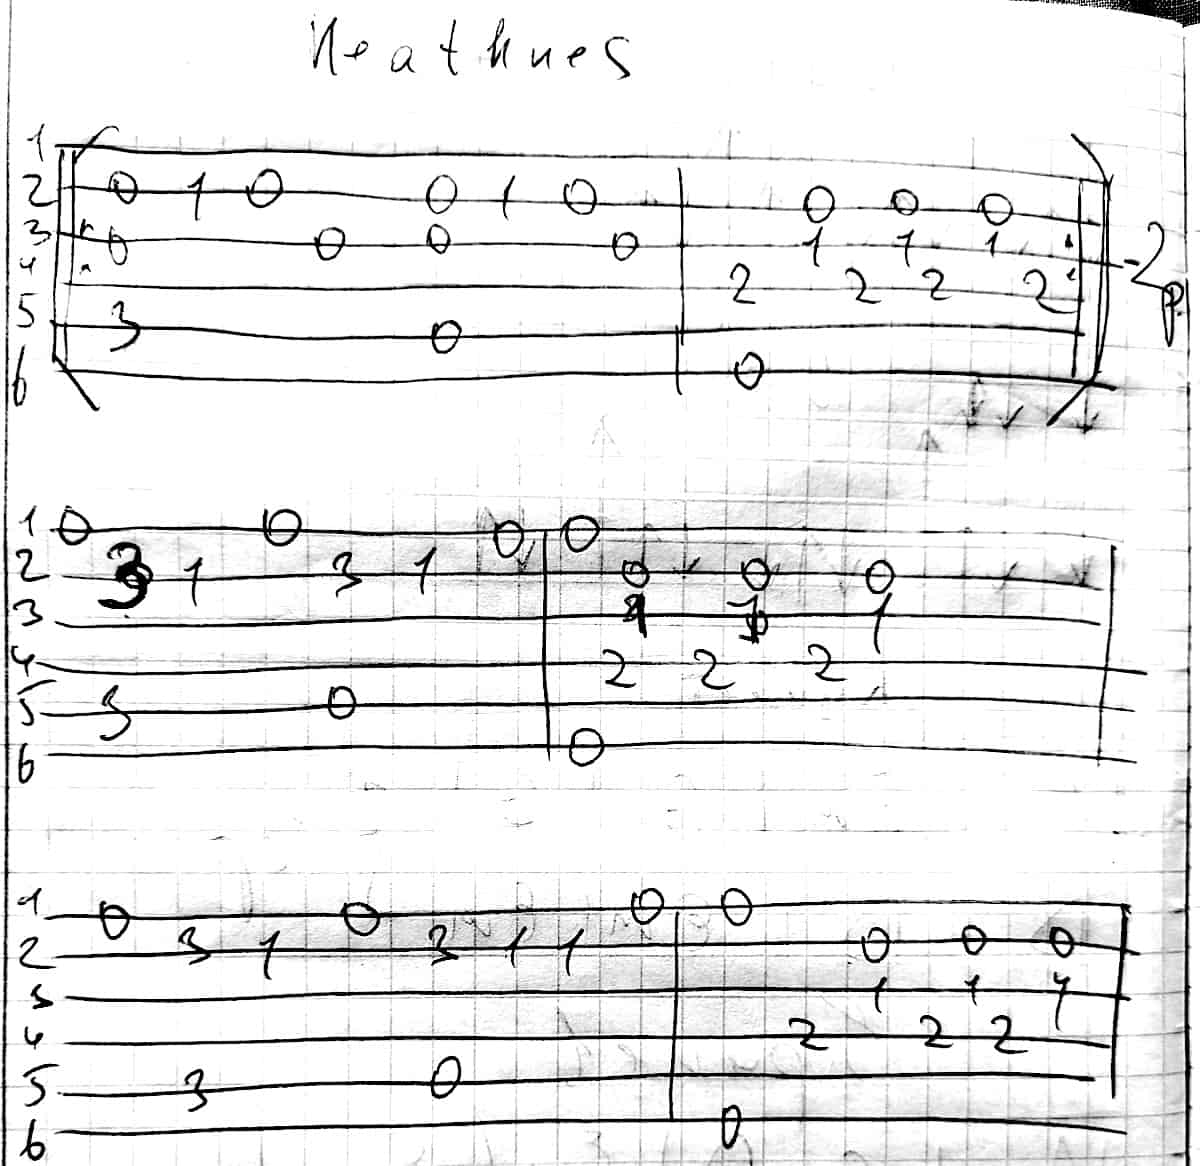 Heathues
1
2 0 1 0 0 1 0 0 0 0
3 0 0 0 0 1 1 1
4 2 2 2 2 -2 p.
5 3 0
6 0
1 0 0 0 0
2 3 1 3 1 0 0 0
3 1 1 1
4 2 2 2
5 3 0
6 0
1 0 0 0 0
2 3 1 3 1 1 0 0 0
3 1 1 1
4 2 2 2
5 3 0
6 0